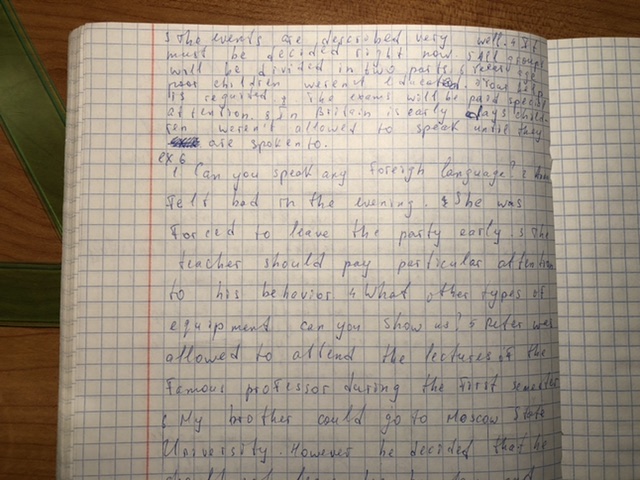 3 The events are described very well. 4 It
must be decided right now. 5 All groups
will be divided in two parts. 6 Years ago
poor children weren't educated. 7 Your help
is required. 8 The exams will be paid special
attention. 9 in Britain is early days child-
ren weren't allowed to speak until they
are spoken to.
ex 6
1. Can you speak any foreign language? 2
felt bad in the evening. She was
forced to leave the party early. 3 The
teacher should pay particular attention
to his behavior 4 What other types of
equipment can you show us? 5 Peter was
allowed to attend the lectures of the
famous professor during the first semester
6 My brother could go to Moscow State
University. However he decided that he
should not